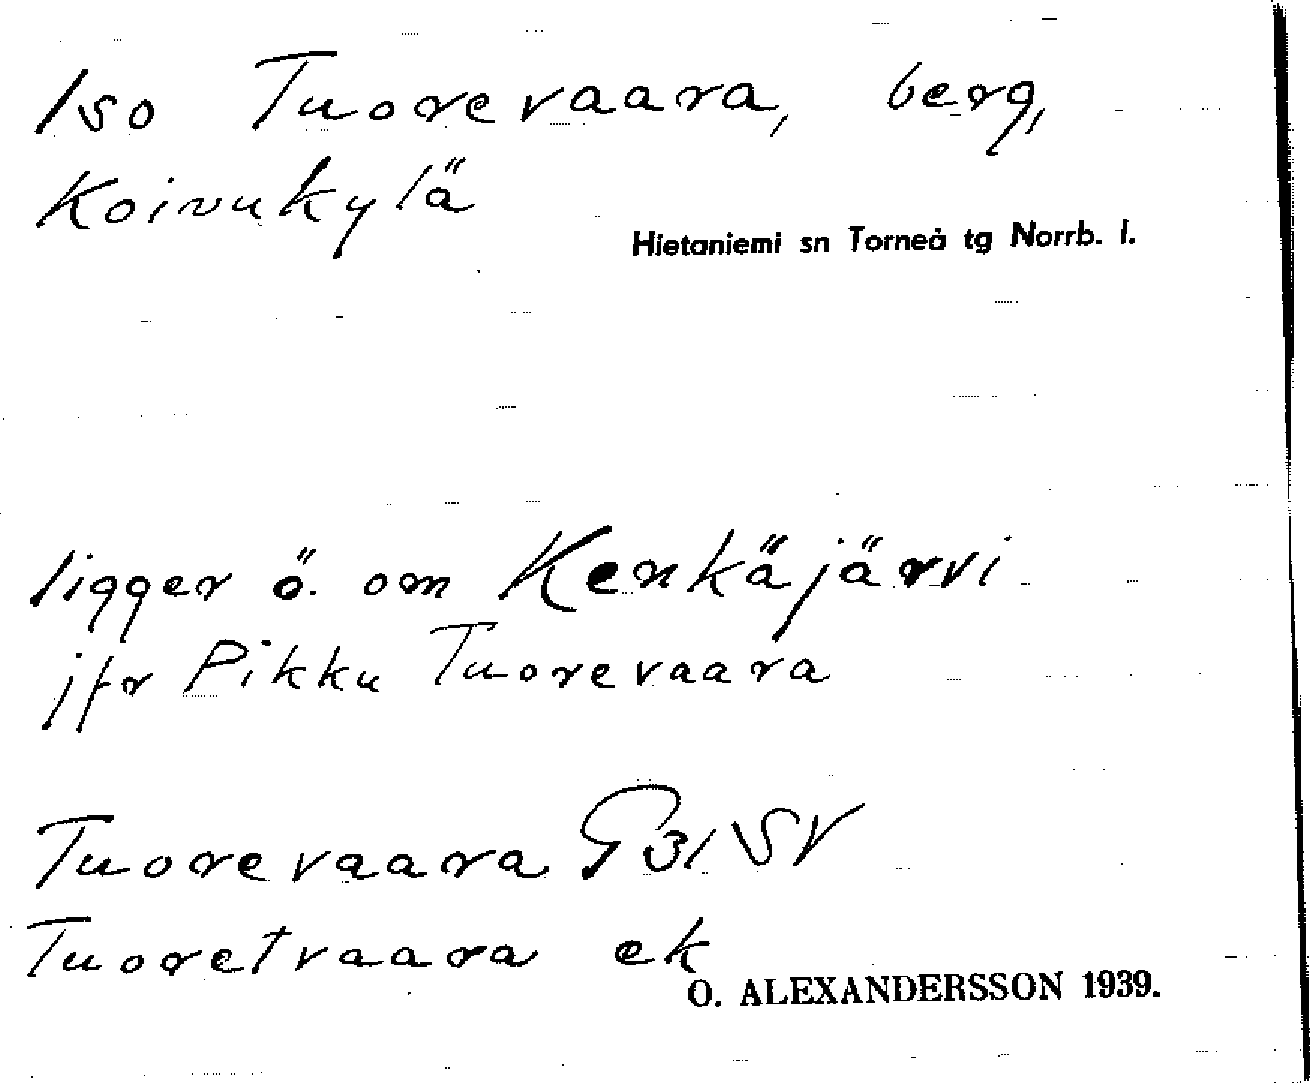 Iso Tuorevaara, berg,
Koivukylä
Hietaniemi sn Torneå tg Norrb. l.
ligger ö. om Kenkäjärvi
jfr Pikku Tuorevaara
Tuorevaara G 31 SV
Tuoretvaara ek
O. ALEXANDERSSON 1939.